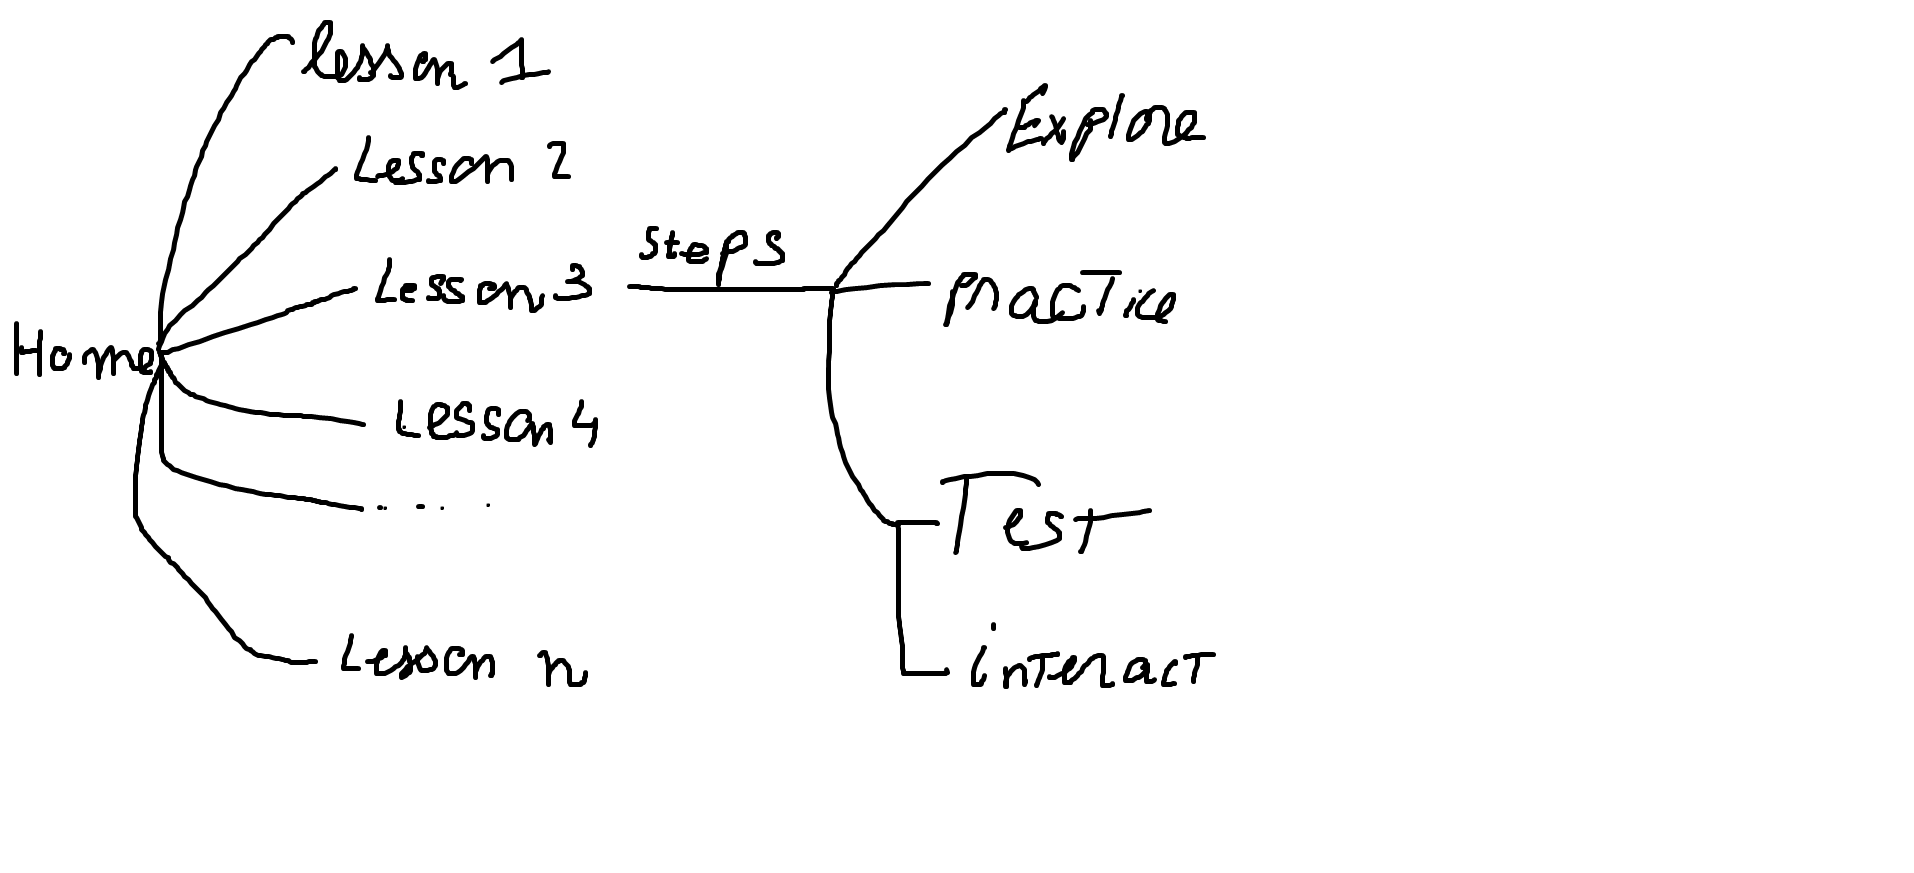 lesson 1
Lesson 2
Lesson 3
Home
Lesson 4
.. - . .
Lesson n
steps
Explore
practice
Test
interact